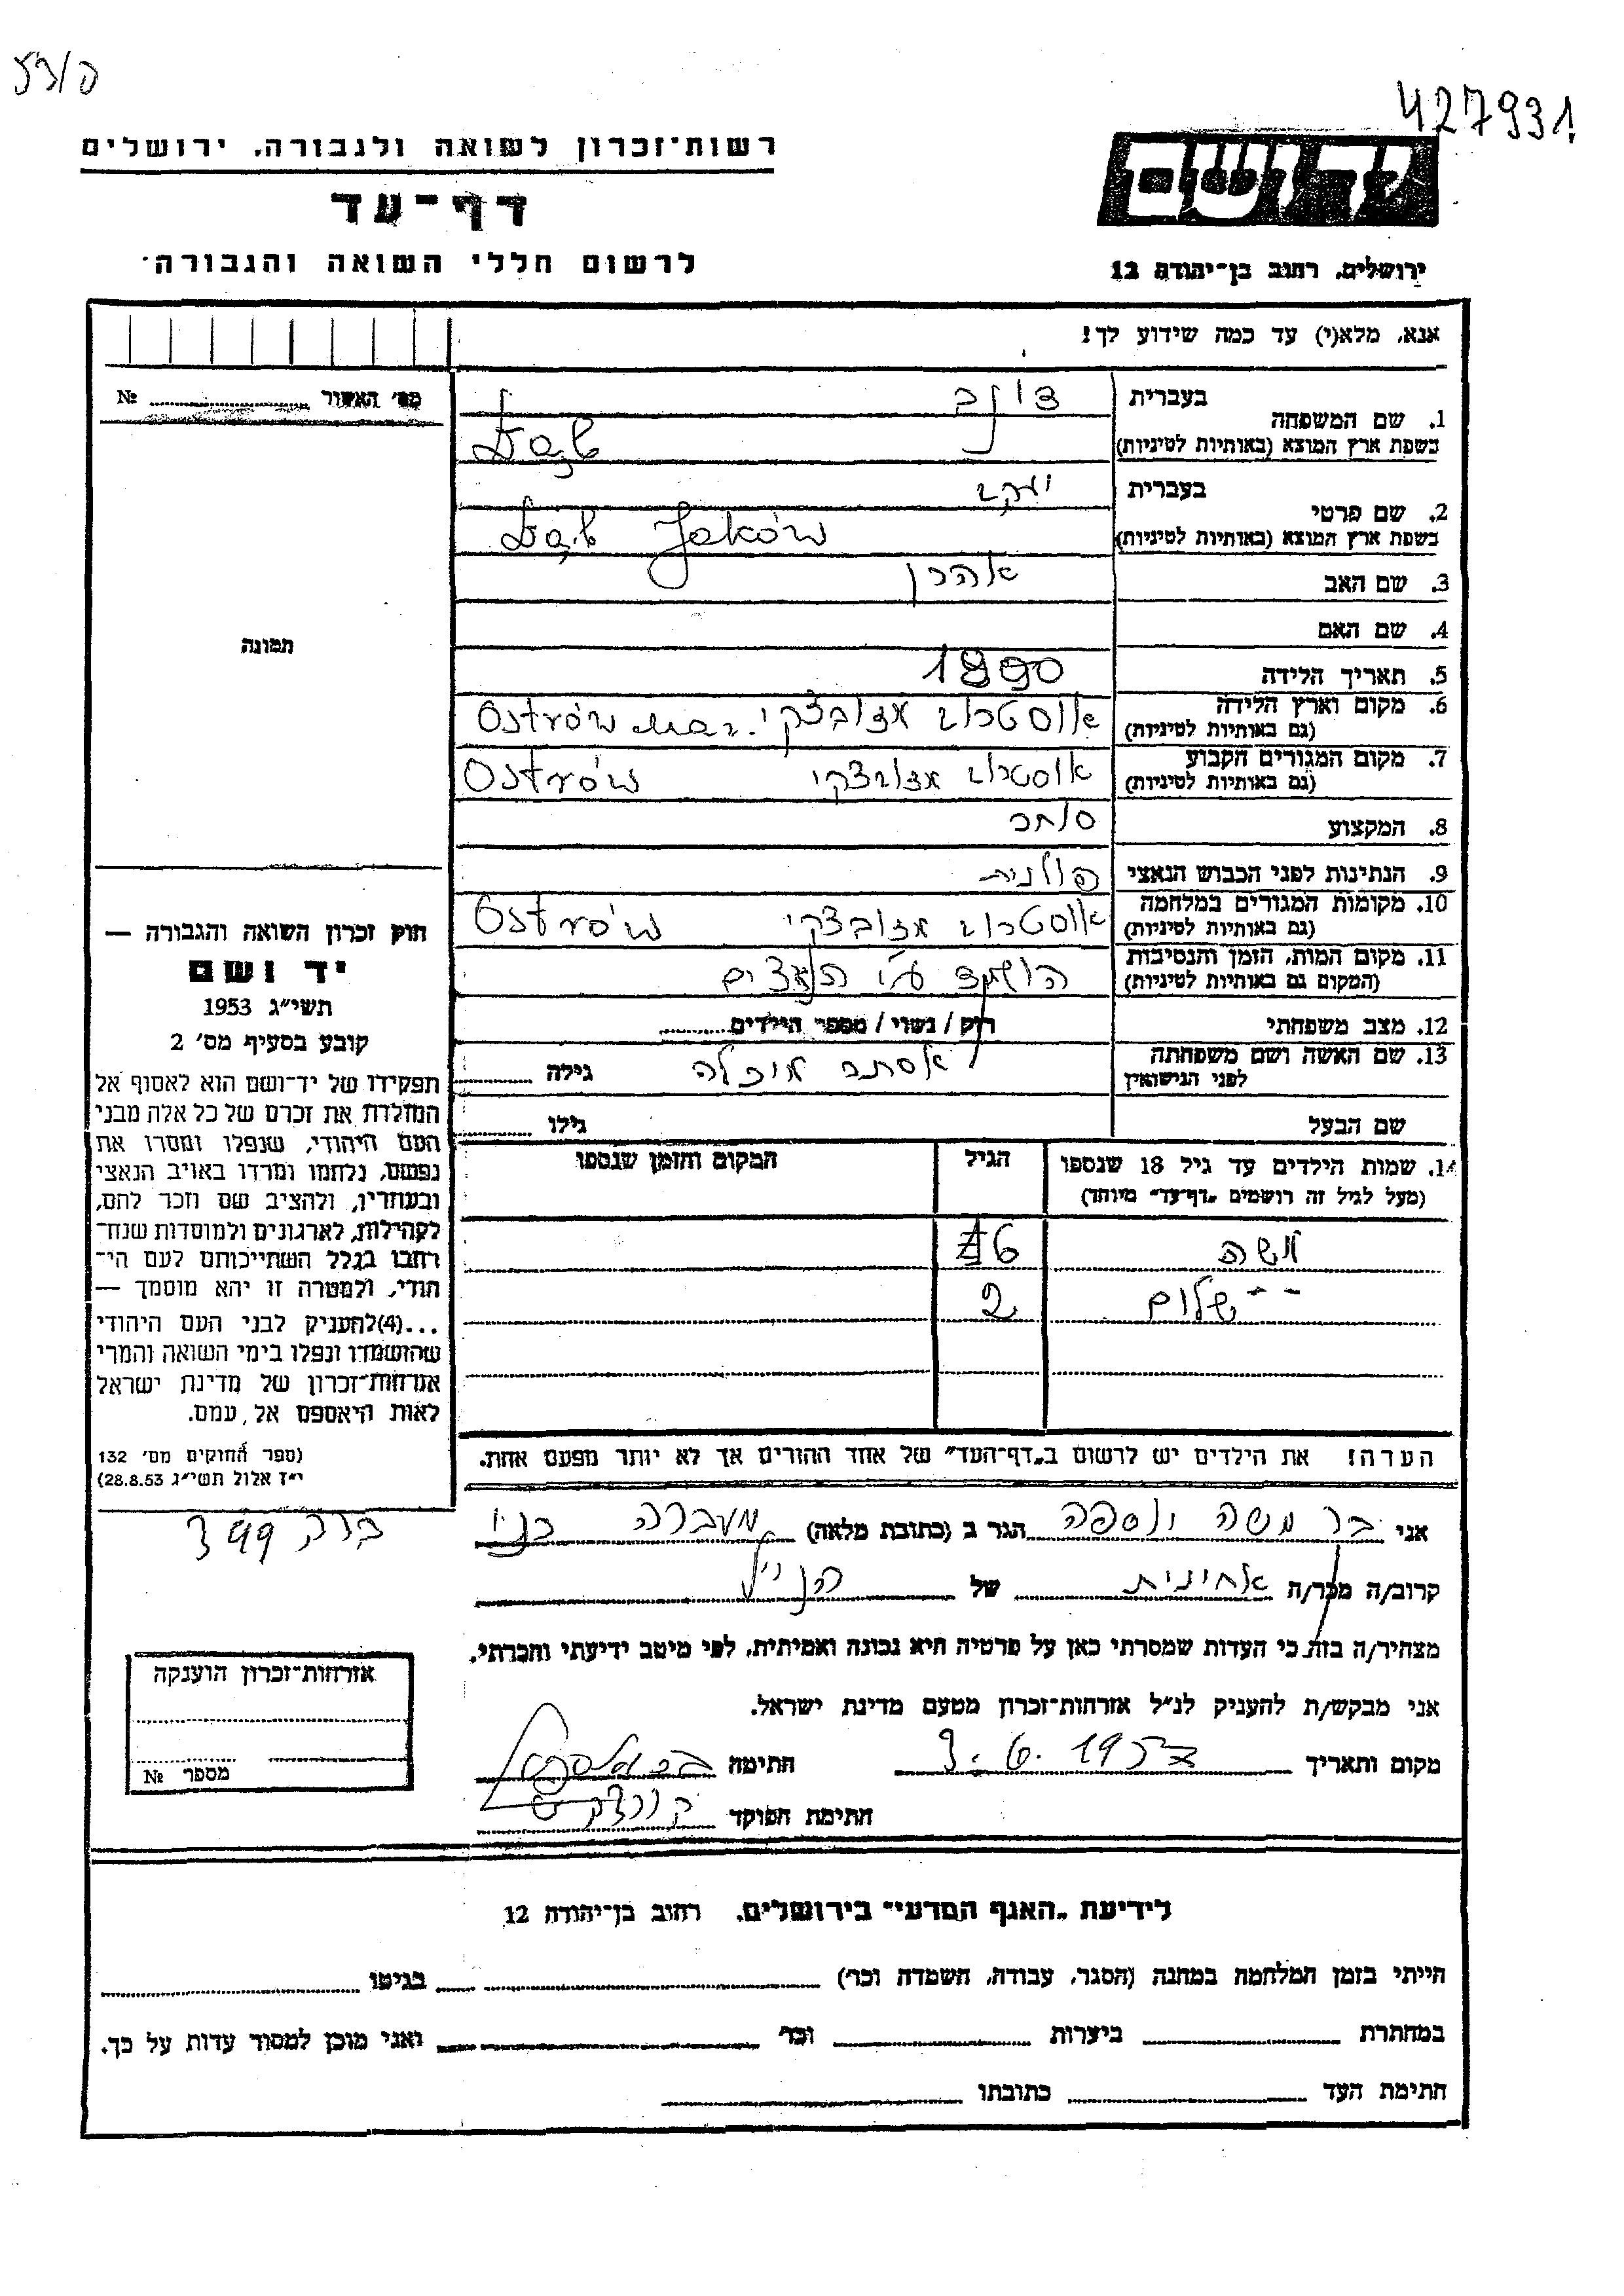 427931
רשות־זכרון לשואה ולגבורה, ירושלים
דף־עד
לרשום חללי השואה והגבורה
ידושם
ירושלים, רחוב בן־יהודה 12
אנא, מלא(י) עד כמה שידוע לך!
מס׳ האשור № 
1. שם המשפחה
בעברית
בשפת ארץ המוצא (באותיות לטיניות)
2. שם פרטי
בעברית יעקב
בשפת ארץ המוצא (באותיות לטיניות) Jaków
3. שם האב אהרן
4. שם האם
5. תאריך הלידה 1890
6. מקום וארץ הלידה
(גם באותיות לטיניות) אוסטרוב מזוביצקי Ostrów Maz.
7. מקום המגורים הקבוע
(גם באותיות לטיניות) אוסטרוב מזוביצקי Ostrów
8. המקצוע סוחר
9. הנתינות לפני הכבוש הנאצי פולנית
10. מקומות המגורים במלחמה
(גם באותיות לטיניות) אוסטרוב מזוביצקי Ostrów
11. מקום המות, הזמן והנסיבות
(המקום גם באותיות לטיניות) הושמד ע״י הנאצים
12. מצב משפחתי רוק / נשוי / מספר הילדים
13. שם האשה ושם משפחתה
לפני הנישואין אסתר גילה
שם הבעל גילו
14. שמות הילדים עד גיל 18 שנספו
(מעל לגיל זה רושמים „דף־עד״ מיוחד)
הגיל
המקום והזמן שנספו
משה 6
שלום 2
הערה! את הילדים יש לרשום ב„דף־העד״ של אחד ההורים אך לא יותר מפעם אחת.
תמונה
חוק זכרון השואה והגבורה —
יד ושם
תשי״ג 1953
קובע בסעיף מס׳ 2
תפקידו של יד־ושם הוא לאסוף אל
המולדת את זכרם של כל אלה מבני
העם היהודי, שנפלו ומסרו את
נפשם, נלחמו ומרדו באויב הנאצי
ובעוזריו, ולהציב שם וזכר להם,
לקהילות, לארגונים ולמוסדות שנח־
רבו בגלל השתייכותם לעם הי־
הודי, ולמטרה זו יהא מוסמך —
...(4) להעניק לבני העם היהודי
שהושמדו ונפלו בימי השואה והמרי
אזרחות־זכרון של מדינת ישראל
לאות היאספם אל עמם.
(ספר החוקים מס׳ 132
י״ז אלול תשי״ג 28.8.53)
אני בר משה יוספה הגר ב (כתובת מלאה) מעברה בני
ברק 399
קרוב/ה מכר/ה אחינית של הנ״ל
מצהיר/ה בזה כי העדות שמסרתי כאן על פרטיה היא נכונה ואמיתית, לפי מיטב ידיעתי והכרתי.
אני מבקש/ת להעניק לנ״ל אזרחות־זכרון מטעם מדינת ישראל.
מקום ותאריך 3.6.1955 חתימה
חתימת הפוקד
אזרחות־זכרון הוענקה
מספר №
לידיעת „האגף המדעי״ בירושלים, רחוב בן־יהודה 12
הייתי בזמן המלחמה במחנה (הסגר, עבודה, השמדה וכו׳) בגיטו
במחתרת ביערות וכו׳ ואני מוכן למסור עדות על כך.
חתימת העד כתובתו